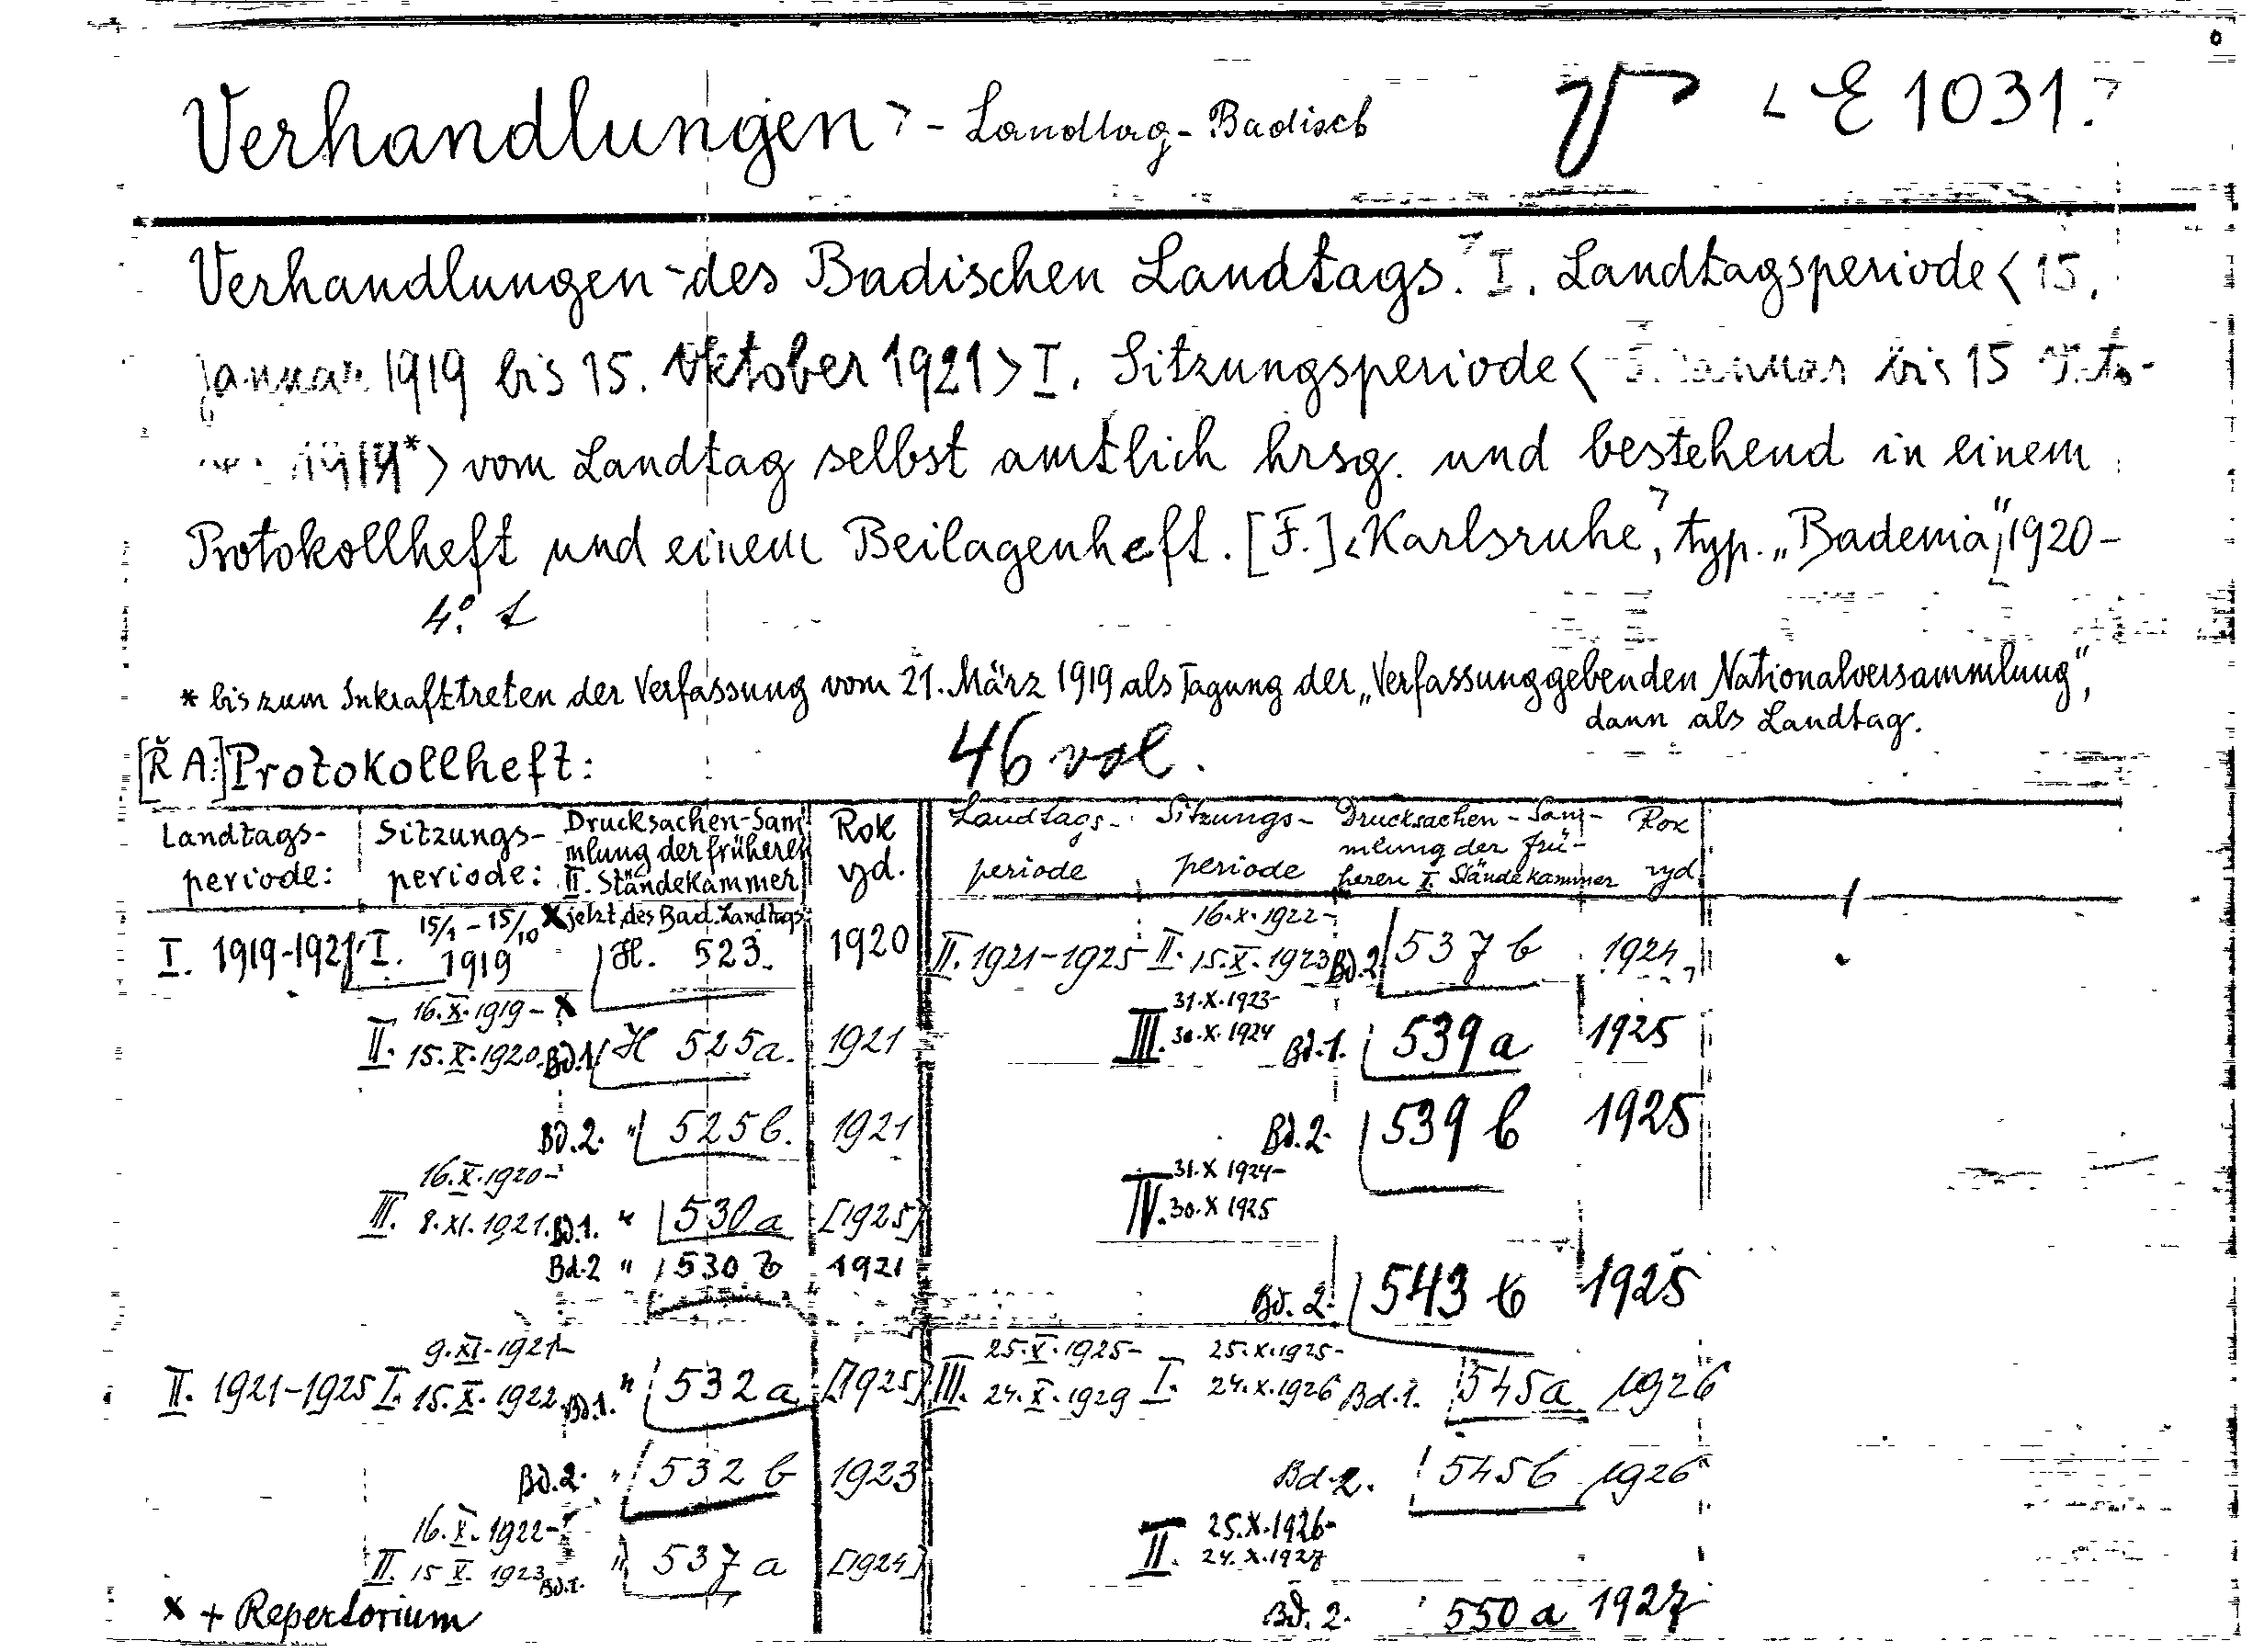 Verhandlungen > - Landtag - Badisch < E 1031.>
Verhandlungen - des Badischen Landtags.> I. Landtagsperiode < 15.
Januar 1919 bis 15. Oktober 1921 > I. Sitzungsperiode < Januar bis 15 Okto-
1919* > vom Landtag selbst amtlich hrsg. und bestehend in einem
Protokollheft und einem Beilagenheft. [F.] < Karlsruhe,> typ. „Badenia", 1920-
4°.
* bis zum Inkrafttreten der Verfassung vom 21. März 1919 als Tagung der „Verfassunggebenden Nationalversammlung",
dann als Landtag.
46 vol.
[Ř A:] Protokollheft:
Landtags-periode: Sitzungs-periode: Drucksachen-Sammlung der früheren II. Ständekammer Rok vyd.
x jetzt des Bad. Landtags
I. 1919-1921 I. 15/1 - 15/10 1919 H. 523. 1920
II. 16.X.1919 - 15.X.1920. x Bd.1. H 525a. 1921
Bd.2. " 525b. 1921
III. 16.X.1920 - 8.XI.1921. Bd.1. " 530a [1925]
Bd.2 " 530b 1921
II. 1921-1925 I. 9.XI.1921 - 15.X.1922. Bd.1. " 532a [1925]
Bd.2. " 532b 1923
II. 16.X.1922 - 15 X. 1923 Bd.1. " 537a [1924]
x + Repertorium
Landtags-periode Sitzungs-periode Drucksachen-Sammlung der früheren II. Ständekammer Rok vyd.
II. 1921-1925 II. 16.X.1922 - 15.X.1923 Bd.2 537b 1924
III. 31.X.1923 - 30.X.1924 Bd.1. 539a 1925
Bd.2. 539b 1925
IV. 31.X 1924 - 30.X 1925
Bd.2. 543b 1925
III. 25.X.1925 - 24.X.1929 I. 25.X.1925 - 24.X.1926 Bd.1. 545a 1926
Bd.2. 545b 1926
II. 25.X.1926 - 24.X.1927
Bd.2. 550a 1927